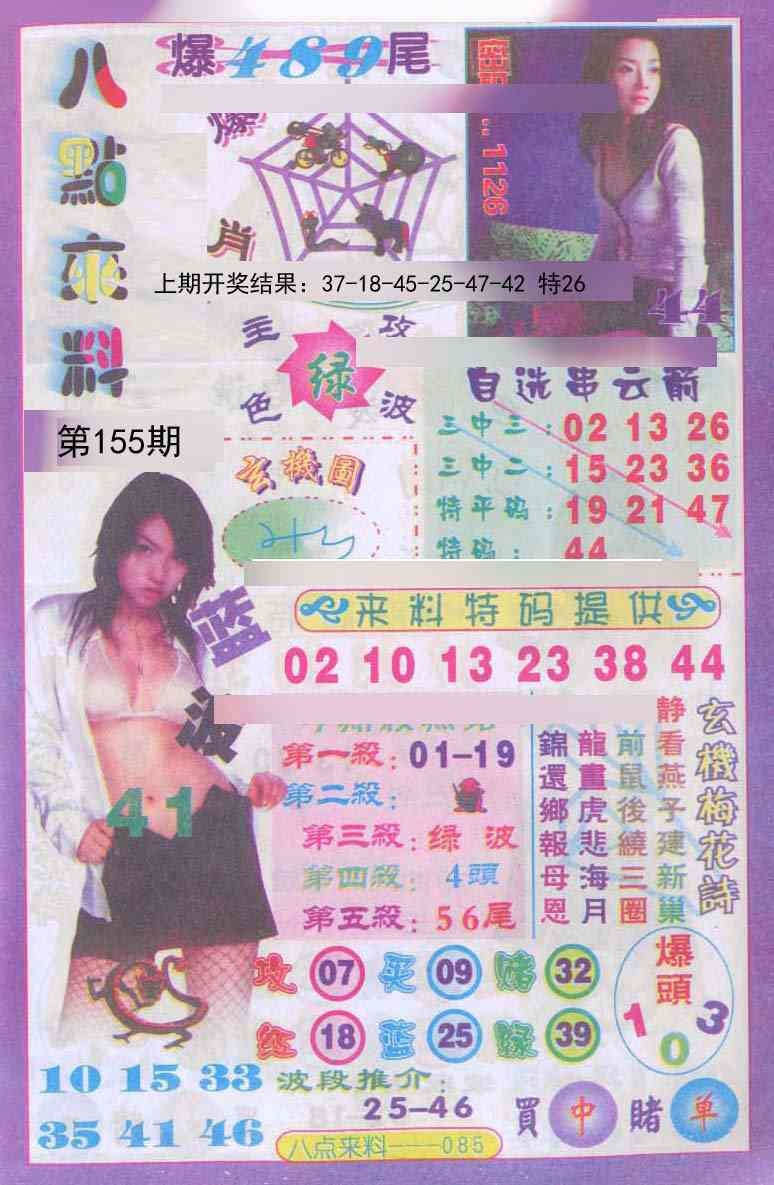 八點來料
爆489尾
爆肖
1126
44
上期开奖结果：37-18-45-25-47-42 特26
主攻
绿
色波
第155期
自选串云箭
三中三：02 13 26
三中二：15 23 36
特平码：19 21 47
特码：44
玄機圖
来料特码提供
02 10 13 23 38 44
蓝波
41
第一殺：01-19
第二殺：
第三殺：绿 波
第四殺：4頭
第五殺：56尾
玄機梅花詩
静看燕子建新巢
前鼠後繞三圈
龍畫虎悲海月
錦還鄉報母恩
攻 07 买 09 赌 32
红 18 蓝 25 绿 39
爆頭
1 0 3
10 15 33
35 41 46
波段推介：
25-46
買 中 賭 单
八点来料——085